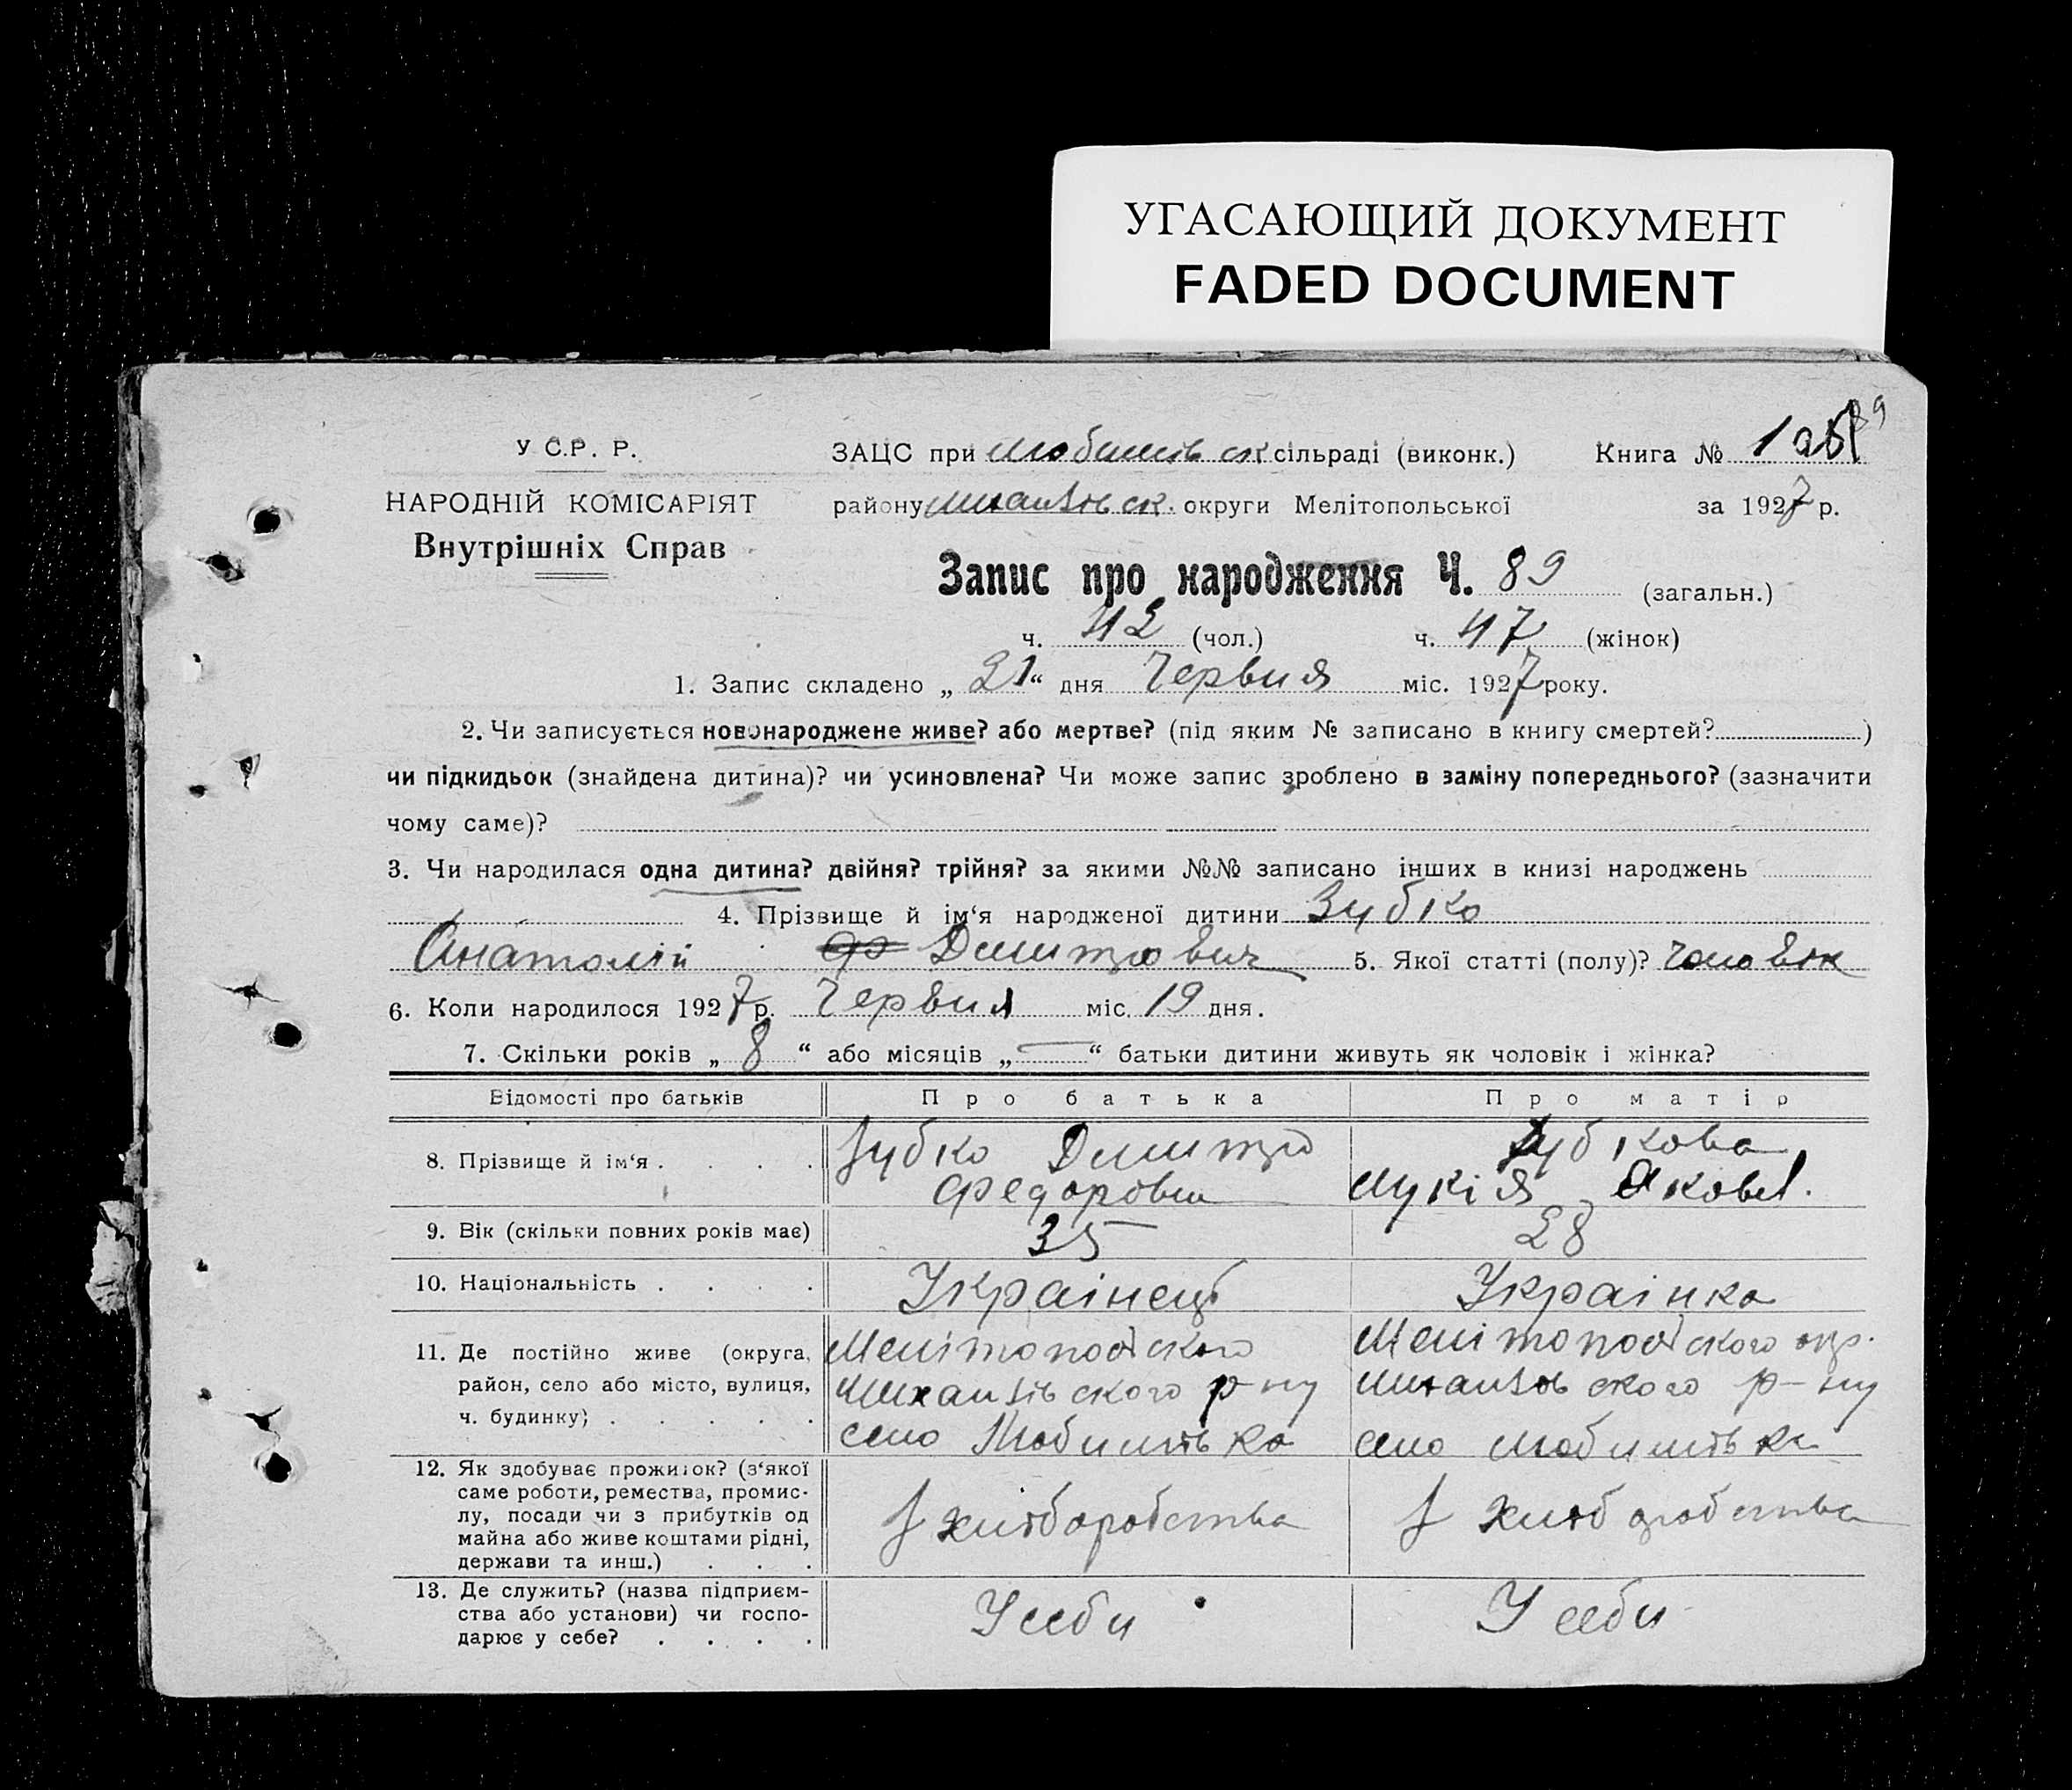 УГАСАЮЩИЙ ДОКУМЕНТ
FADED DOCUMENT
У С.Р. Р.
ЗАЦС при Любимівск сільраді (виконк.)
Книга № 1
НАРОДНІЙ КОМІСАРІЯТ
району Михайлівск. округи Мелітопольської
за 1927 р.
Внутрішніх Справ
Запис про народження Ч. 89 (загальн.)
ч. 42 (чол.) ч. 47 (жінок)
1. Запис складено „ 21 “ дня Червня міс. 1927 року.
2. Чи записується новонароджене живе? або мертве? (під яким № записано в книгу смертей? )
чи підкидьок (знайдена дитина)? чи усиновлена? Чи може запис зроблено в заміну попереднього? (зазначити
чому саме)?
3. Чи народилася одна дитина? двійня? трійня? за якими №№ записано інших в книзі народжень
4. Прізвище й ім‘я народженої дитини Зубко
Анатолій Дмитрович 5. Якої статті (полу)? чоловік
6. Коли народилося 1927 р. Червня міс. 19 дня.
7. Скільки років „ 8 “ або місяців „ — “ батьки дитини живуть як чоловік і жінка?
Відомості про батьків
Про батька
Про матір
8. Прізвище й ім‘я . . . .
Зубко Дмитро
Федорови
Зубкова
Лукія Яковл.
9. Вік (скільки повних років має)
35
28
10. Національність . . . .
Українець
Українка
11. Де постійно живе (округа,
район, село або місто, вулиця,
ч. будинку) . . . . .
Мелітопольского
Михайлівского р-ну
село Любимівка
Мелітопольского окр.
Михайлівского р-ну
село Любимівка
12. Як здобуває прожиток? (з‘якої
саме роботи, ремества, промис-
лу, посади чи з прибутків од
майна або живе коштами рідні,
держави та инш.) . . .
З хліборобства
З хліборобства
13. Де служить? (назва підприєм-
ства або установи) чи госпо-
дарює у себе? . . . .
У себи
У себи